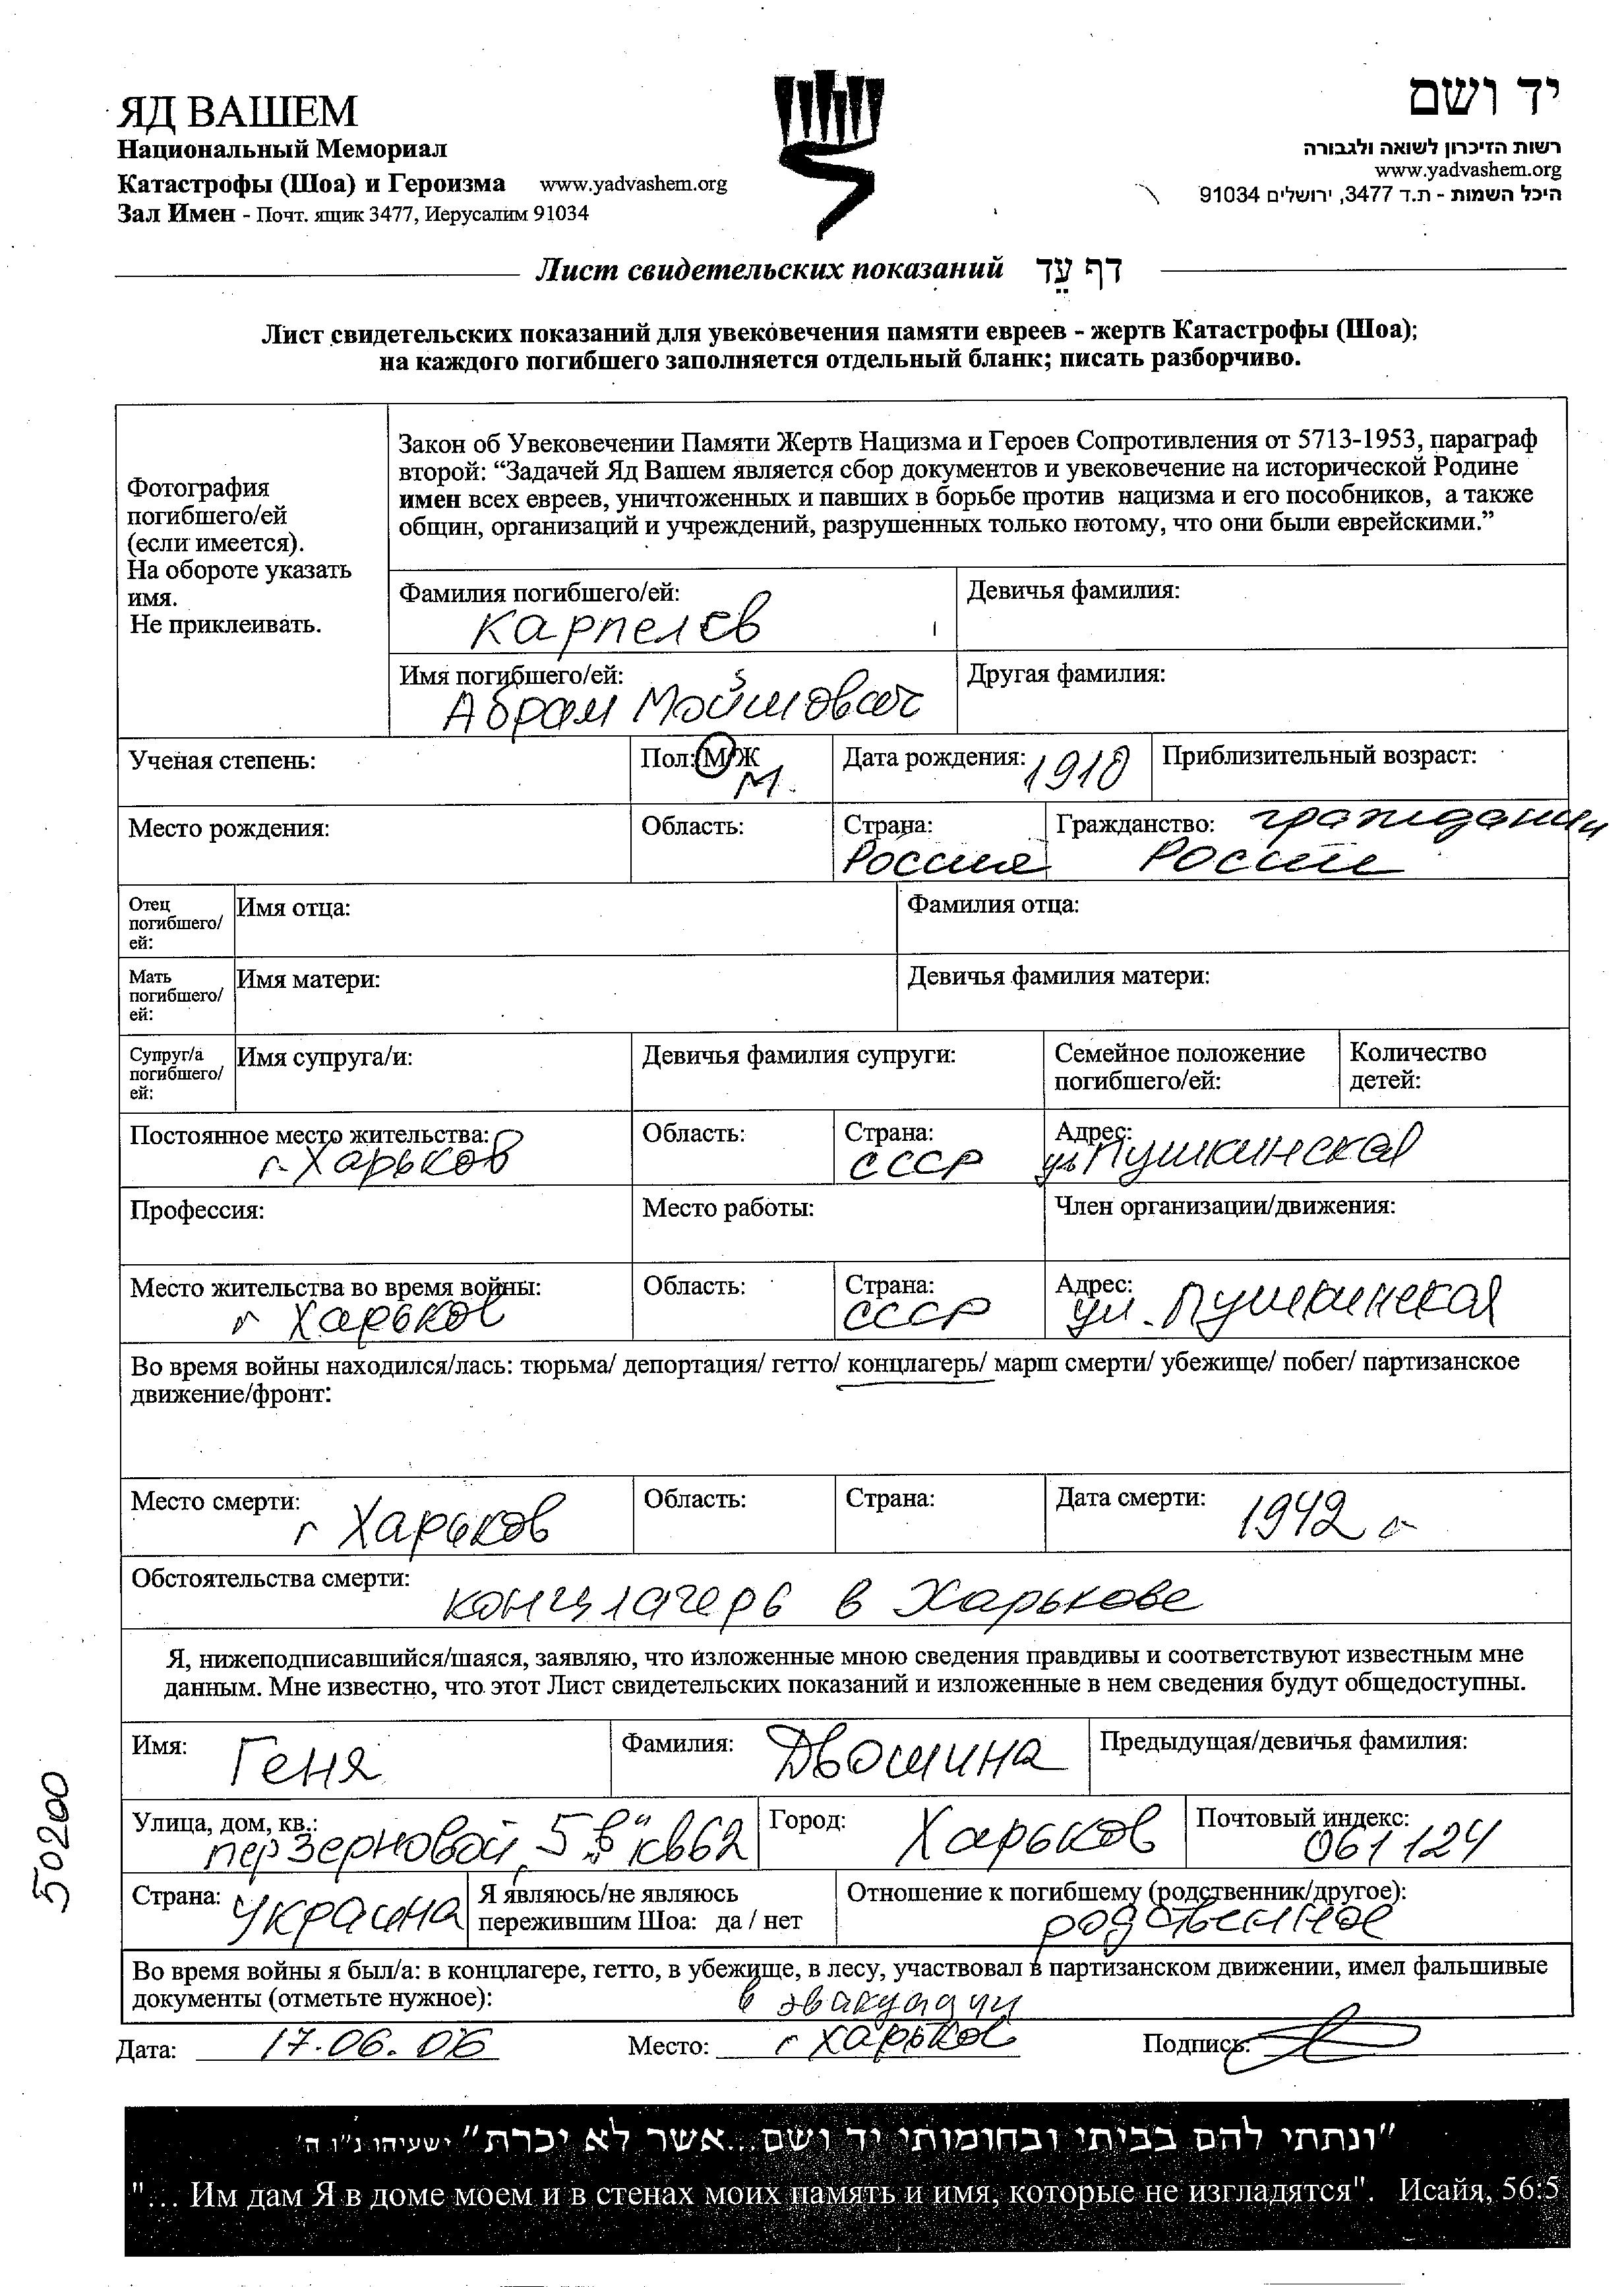 ЯД ВАШЕМ
Национальный Мемориал
Катастрофы (Шоа) и Героизма www.yadvashem.org
Зал Имен - Почт. ящик 3477, Иерусалим 91034
יד ושם
רשות הזיכרון לשואה ולגבורה
www.yadvashem.org
היכל השמות - ת.ד 3477, ירושלים 91034
Лист свидетельских показаний דף עֵד
Лист свидетельских показаний для увековечения памяти евреев - жертв Катастрофы (Шоа);
на каждого погибшего заполняется отдельный бланк; писать разборчиво.
Фотография
погибшего/ей
(если имеется).
На обороте указать
имя.
Не приклеивать.
Закон об Увековечении Памяти Жертв Нацизма и Героев Сопротивления от 5713-1953, параграф
второй: “Задачей Яд Вашем является сбор документов и увековечение на исторической Родине
имен всех евреев, уничтоженных и павших в борьбе против нацизма и его пособников, а также
общин, организаций и учреждений, разрушенных только потому, что они были еврейскими.”
Фамилия погибшего/ей: Девичья фамилия:
Карпелев
Имя погибшего/ей: Другая фамилия:
Абрам Мойшович
Ученая степень: Пол: М/Ж М. Дата рождения: 1910 Приблизительный возраст:
Место рождения: Область: Страна: Гражданство: гражданин
Россия России
Отец
погибшего/
ей:
Имя отца: Фамилия отца:
Мать
погибшего/
ей:
Имя матери: Девичья фамилия матери:
Супруг/а
погибшего/
ей:
Имя супруга/и: Девичья фамилия супруги: Семейное положение
погибшего/ей:
Количество
детей:
Постоянное место жительства: Область: Страна: Адрес:
г. Харьков СССР ул Пушкинская
Профессия: Место работы: Член организации/движения:
Место жительства во время войны: Область: Страна: Адрес:
г Харьков СССР ул. Пушкинская
Во время войны находился/лась: тюрьма/ депортация/ гетто/ концлагерь/ марш смерти/ убежище/ побег/ партизанское
движение/фронт:
Место смерти: г Харьков Область: Страна: Дата смерти: 1942 г
Обстоятельства смерти: концлагерь в Харькове
Я, нижеподписавшийся/шаяся, заявляю, что изложенные мною сведения правдивы и соответствуют известным мне
данным. Мне известно, что этот Лист свидетельских показаний и изложенные в нем сведения будут общедоступны.
Имя: Геня Фамилия: Двошина Предыдущая/девичья фамилия:
Улица, дом, кв.: Город: Харьков Почтовый индекс:
пер Зерновой, 5 „в“ кв62 061124
Страна: Украина Я являюсь/не являюсь
пережившим Шоа: да / нет
Отношение к погибшему (родственник/другое):
родственное
Во время войны я был/а: в концлагере, гетто, в убежище, в лесу, участвовал в партизанском движении, имел фальшивые
документы (отметьте нужное): в эвакуации
Дата: 17.06.06 Место: г Харьков Подпись:
50200
"ונתתי להם בביתי ובחומותי יד ושם...אשר לא יכרת" ישעיהו נ"ו ה'
"… Им дам Я в доме моем и в стенах моих память и имя, которые не изгладятся". Исайя, 56:5